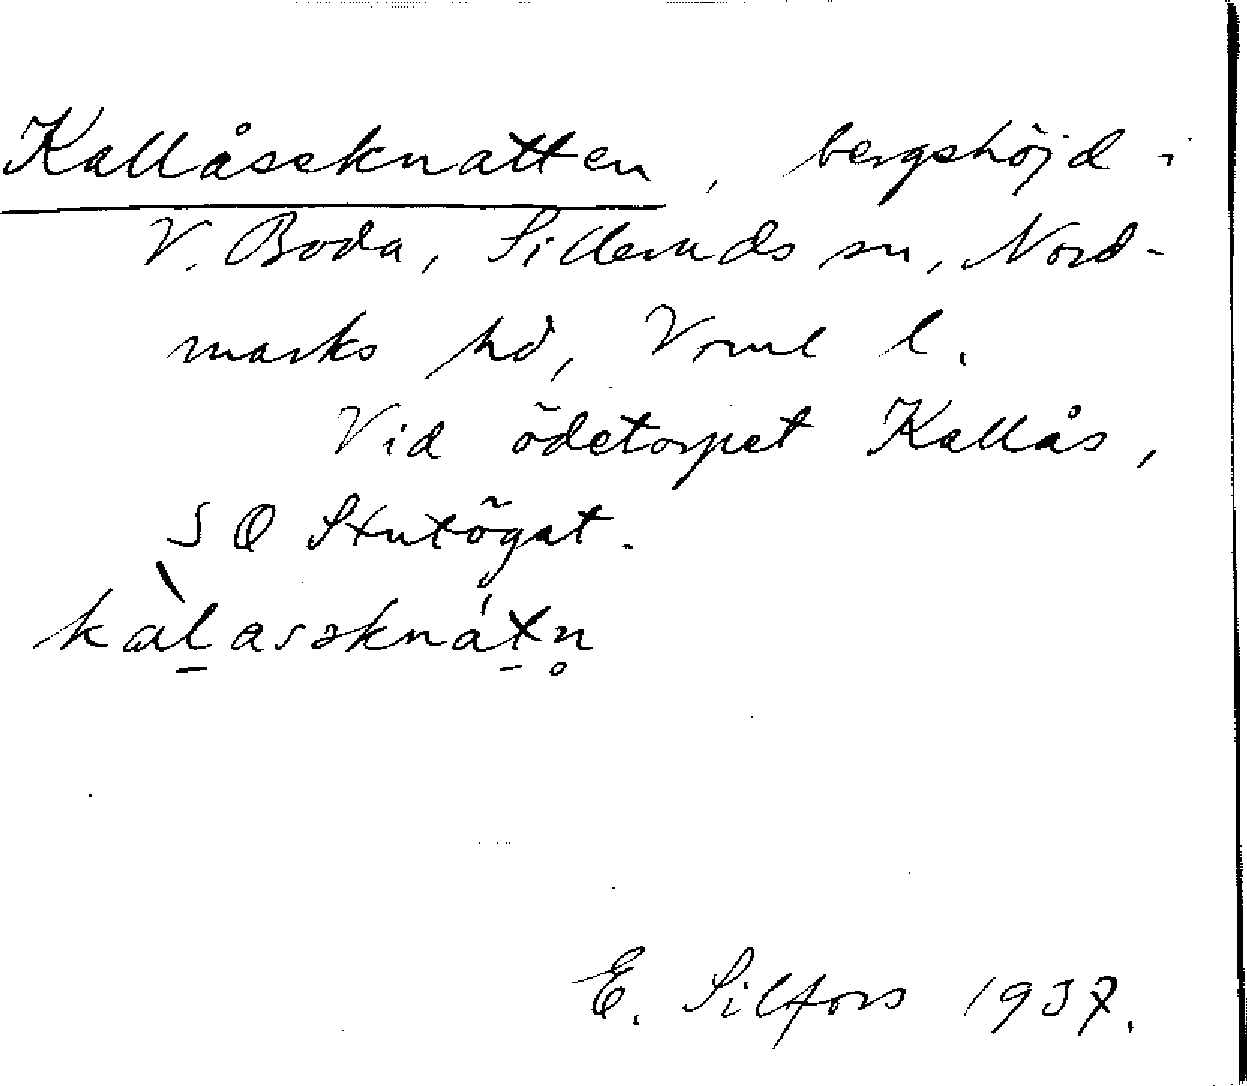 Kallåseknatten, bergshöjd i
V. Boda, Silleruds sn, Nord-
marks hd, Vrml l.
Vid ödetorpet Kallås,
SO Stutögat.
kàlasəknátn̥
E. Silfors 1937.